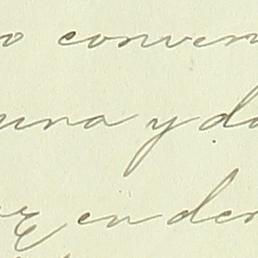 o conven
una y da
en den